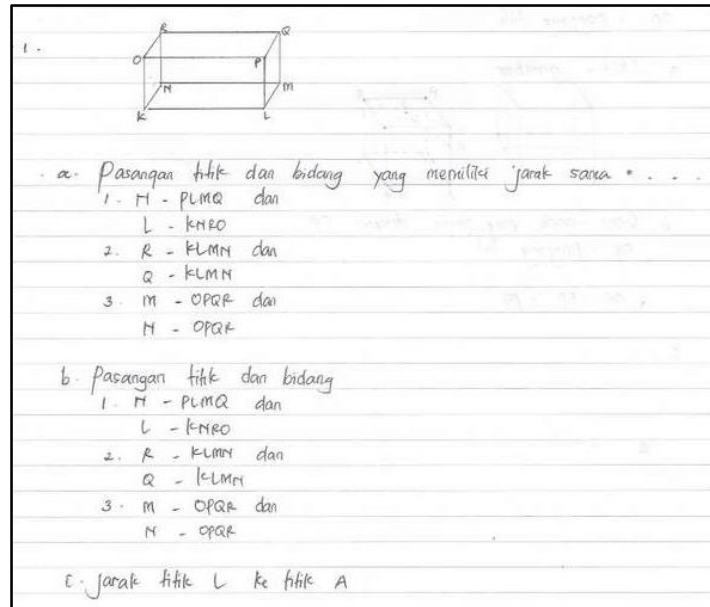 1.
R Q
O P
N M
K L
a. Pasangan titik dan bidang yang memiliki jarak sama . . . .
1. N - PLMQ dan
L - KNRO
2. R - KLMN dan
Q - KLMN
3. M - OPQR dan
N - OPQR
b. Pasangan titik dan bidang
1. N - PLMQ dan
L - KNRO
2. R - KLMN dan
Q - KLMN
3. M - OPQR dan
N - OPQR
c. jarak titik L ke titik A